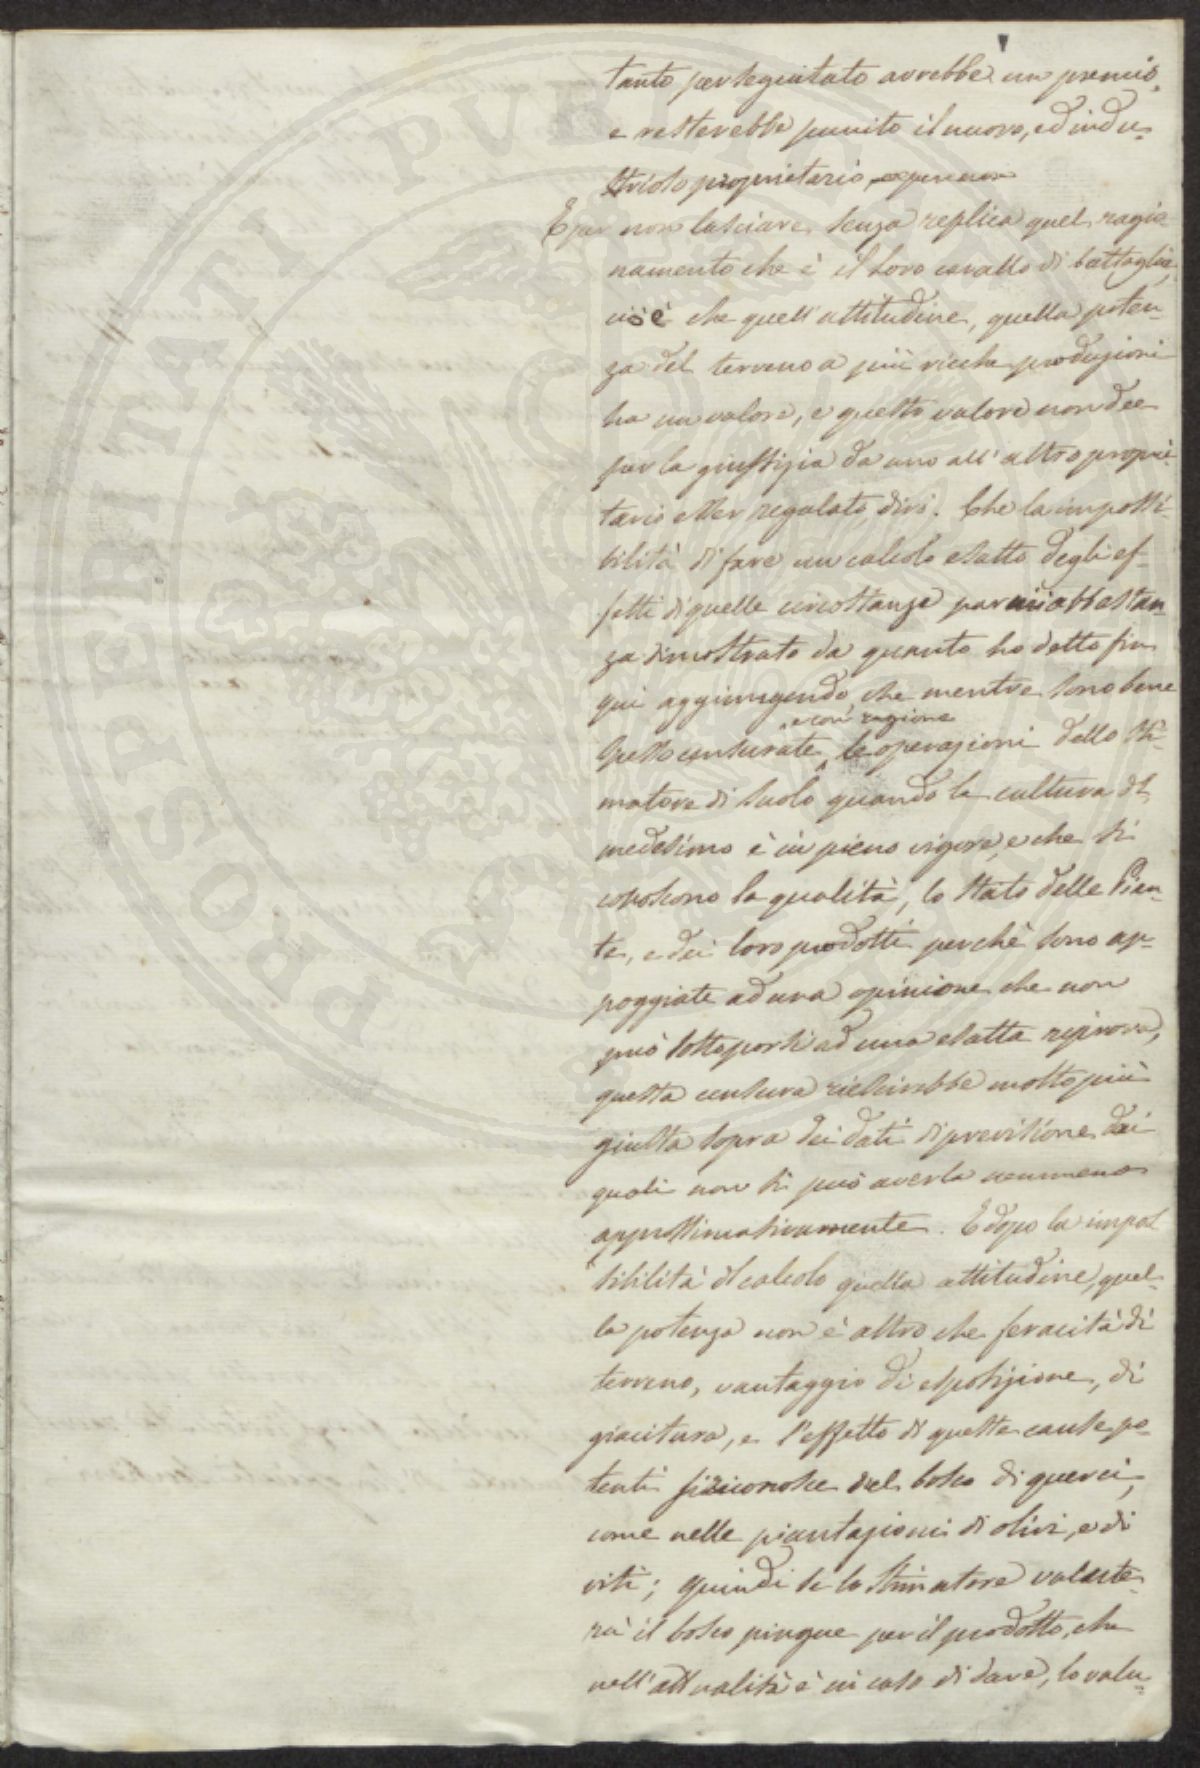 tanto perseguitato avrebbe un premio,
e resterebbe punito il nuovo, ed indu-
strioso proprietario,
E per non lasciare senza replica quel ragio-
namento che è il loro cavallo di battaglia,
cioè che quell'attitudine, quella poten-
za del terreno a più ricche produzioni
ha un valore, e questo valore non dee
per la giustizia da uno all'altro proprie-
tario esser regalato, dirò. Che la impossi-
bilità di fare un calcolo esatto degli ef-
fetti di quelle circostanze parmi abbastan-
za dimostrato da quanto ho detto fin
qui aggiungendo, che mentre sono bene
e con ragione
spesso censurate le operazioni dello Sti-
matore di suolo quando la cultura del
medesimo è in pieno vigore, e che si
conoscono la qualità, lo stato delle Pian-
te, e dei loro prodotti perchè sono ap-
poggiate ad una opinione che non
può sottoporsi ad una esatta riprova,
questa censura riescirebbe molto più
giusta sopra dei dati di previsione dai
quali non si può averla nemmeno
approssimativamente. E dopo la impos
sibilità del calcolo quella attitudine, quel-
la potenza non è altro che feracità di
terreno, vantaggio di esposizione, di
giacitura, e l'effetto di queste cause po-
tenti si riconosce nel bosco di querci,
come nelle piantazioni di olivi, e di
viti; quindi se lo stimatore valute-
rà il bosco pingue per il prodotto, che
nell'attualità è in caso di dare, lo valu-